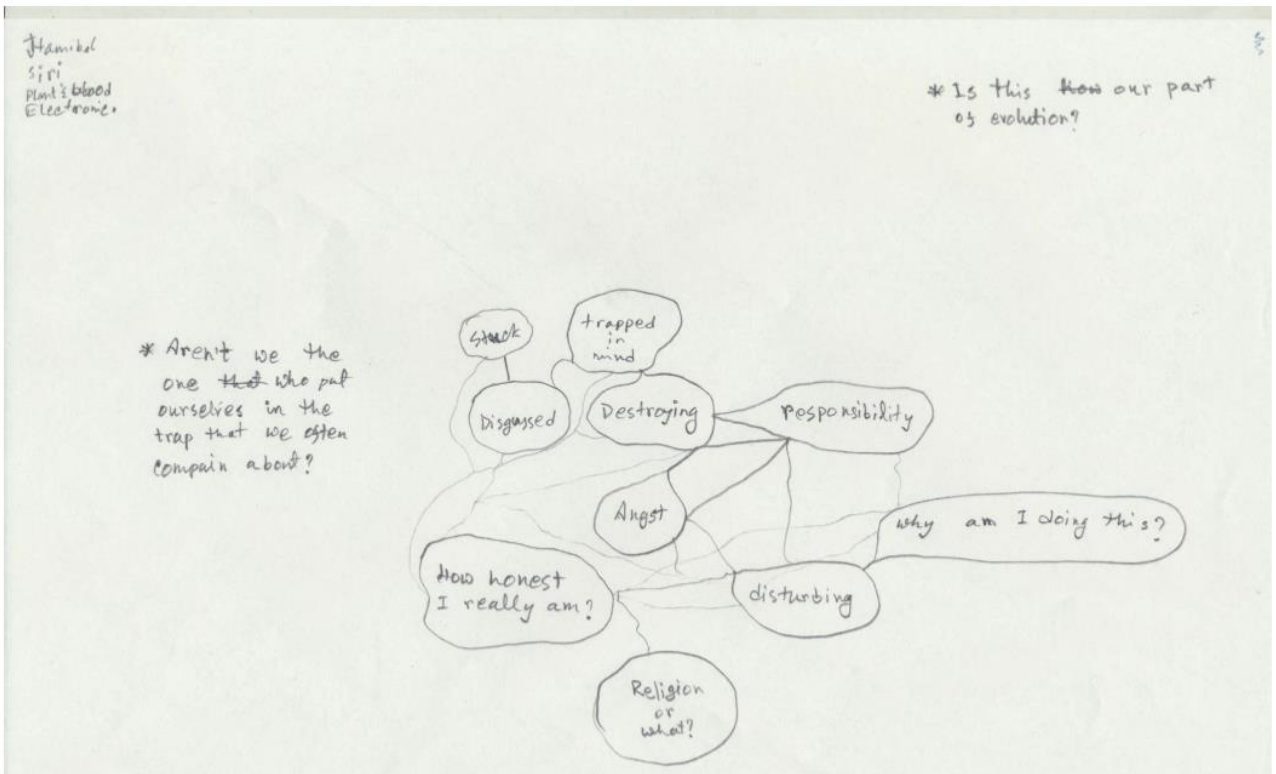 Hamibol
Siri
Plant's blood
Electronic.
* Is this how our part
of evolution?
* Aren't we the
one that who put
ourselves in the
trap that we often
compain about?
stuck
trapped
in
mind
Disgussed
Destroying
responsibility
Angst
why am I doing this?
How honest
I really am?
disturbing
Religion
or
what?